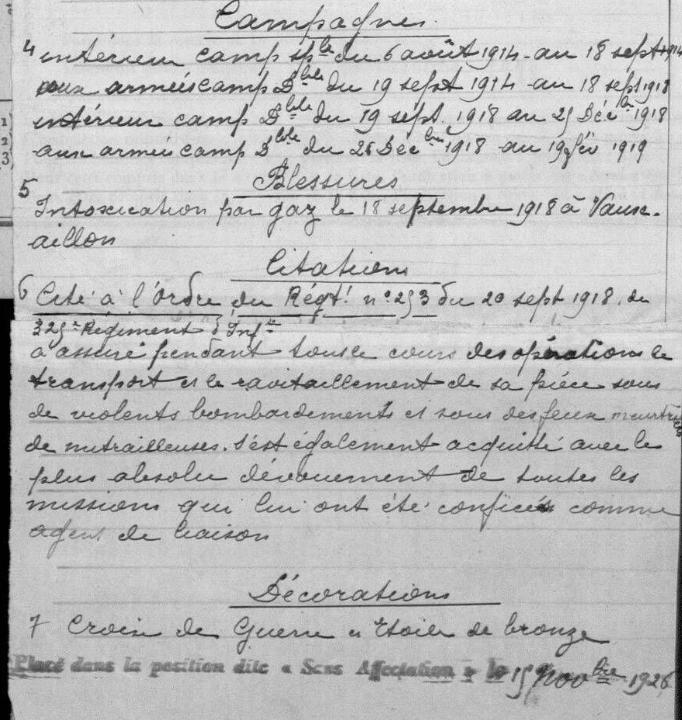 Campagnes
4 intérieur camp sple du 6 août 1914 au 18 sept 1914
aux armées camp Dble du 19 sept 1914 au 18 sept 1918
intérieur camp Dble du 19 sept. 1918 au 25 Déc bre 1918
aux armée camp Dble du 26 Déc bre 1918 au 19 fév 1919
Blessures
5 Intoxication par gaz le 18 septembre 1918 à Vaux-
aillon
Citations
6 Cité à l'Ordre du Régt. n° 253 du 20 sept 1918. du
329e Régiment d'Infie
a assuré pendant tous le cours des opérations le
transport et le ravitaillement de sa pièce sous
de violents bombardements et sous des feux meurtriers
de mitrailleuses. S'est également acquitté avec le
plus absolu dévouement de toutes les
missions qui lui ont été confiées comme
agent de liaison
Décorations
7 Croix de Guerre et Etoile de bronze
Placé dans la position dite « Sans Affectation » le 15 Novbre 1926
1
2
3